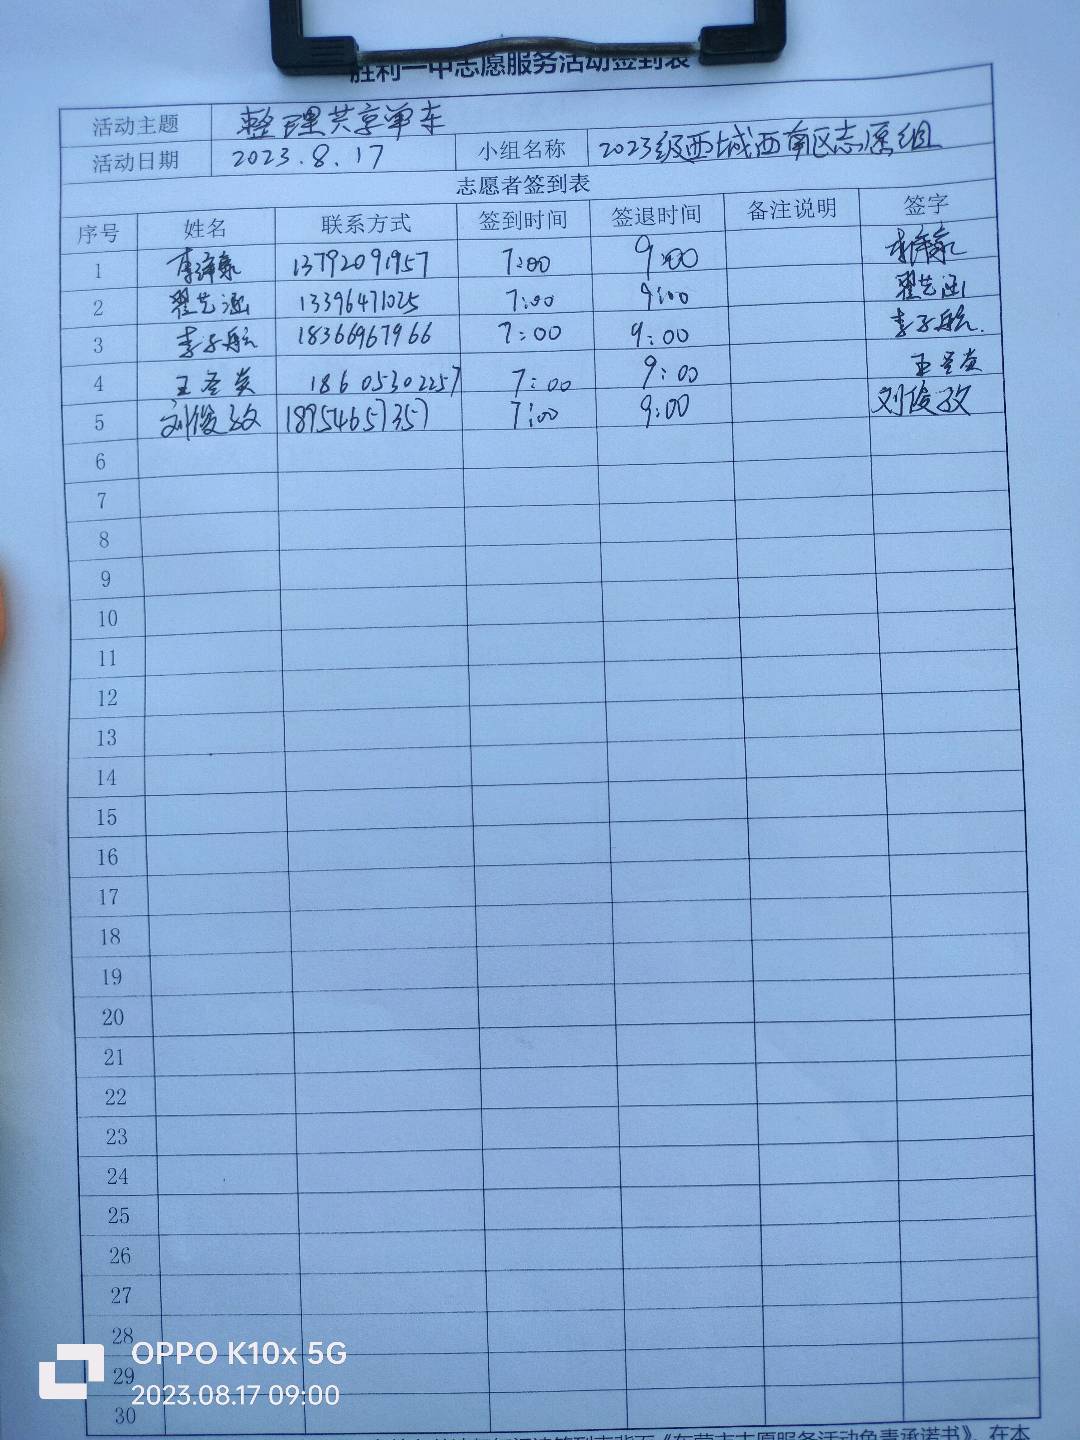 胜利一中志愿服务活动签到表
活动主题 整理共享单车
活动日期 2023.8.17 小组名称 2023级西城西南区志愿组
志愿者签到表
序号 姓名 联系方式 签到时间 签退时间 备注说明 签字
1 李 13792091957 7:00 9:00
2 翟艺涵 13396471025 7:00 9:00 翟艺涵
3 李子航 18366967966 7:00 9:00 李子航.
4 王圣炎 18605302257 7:00 9:00 王圣炎
5 刘俊孜 18954657357 7:00 9:00 刘俊孜
6
7
8
9
10
11
12
13
14
15
16
17
18
19
20
21
22
23
24
25
26
27
28
29
30
《东营市志愿服务活动免责承诺书》，在本
OPPO K10x 5G
2023.08.17 09:00